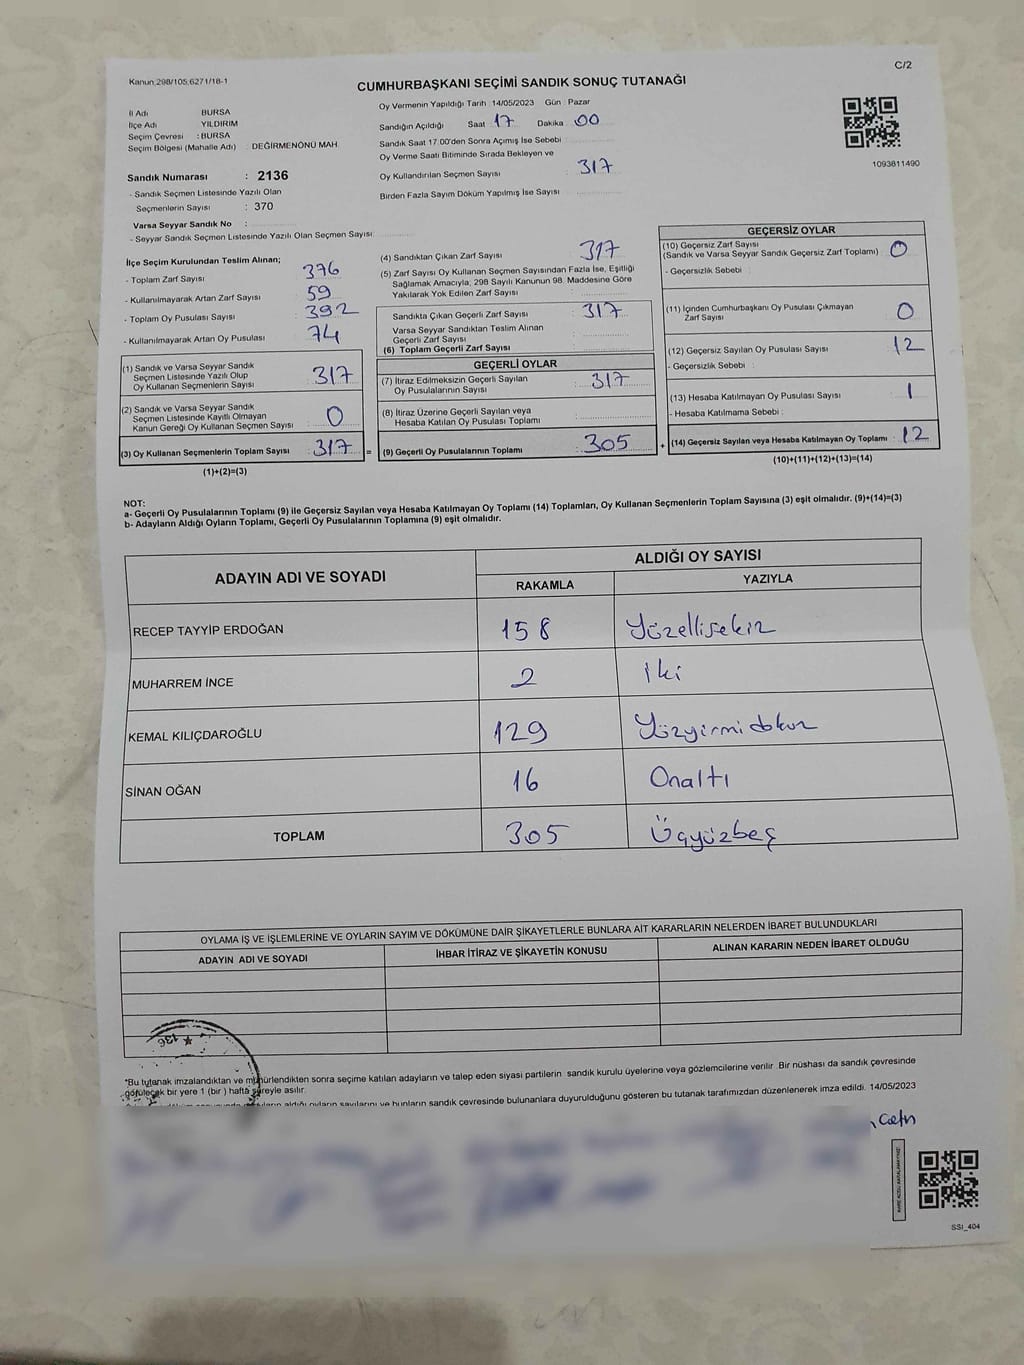 C/2
Kanun, 298/105,6271/18-1
CUMHURBAŞKANI SEÇİMİ SANDIK SONUÇ TUTANAĞI
İl Adı BURSA
İlçe Adı YILDIRIM
Seçim Çevresi : BURSA
Seçim Bölgesi (Mahalle Adı) : DEĞİRMENÖNÜ MAH.
Oy Vermenin Yapıldığı Tarih 14/05/2023 Gün : Pazar
Sandığın Açıldığı Saat 17 Dakika 00
Sandık Saat 17.00'den Sonra Açımış İse Sebebi
Oy Verme Saati Bitiminde Sırada Bekleyen ve
Oy Kullandırılan Seçmen Sayısı : 317
Birden Fazla Sayım Döküm Yapılmış İse Sayısı
1093811490
Sandık Numarası : 2136
- Sandık Seçmen Listesinde Yazılı Olan
Seçmenlerin Sayısı : 370
Varsa Seyyar Sandık No :
- Seyyar Sandık Seçmen Listesinde Yazılı Olan Seçmen Sayısı:
İlçe Seçim Kurulundan Teslim Alınan;
- Toplam Zarf Sayısı 376
- Kullanılmayarak Artan Zarf Sayısı 59
- Toplam Oy Pusulası Sayısı 392
- Kullanılmayarak Artan Oy Pusulası 74
(1) Sandık ve Varsa Seyyar Sandık
Seçmen Listesinde Yazılı Olup
Oy Kullanan Seçmenlerin Sayısı : 317
(2) Sandık ve Varsa Seyyar Sandık
Seçmen Listesinde Kayıtlı Olmayan
Kanun Gereği Oy Kullanan Seçmen Sayısı : 0
(3) Oy Kullanan Seçmenlerin Toplam Sayısı : 317 =
(1)+(2)=(3)
(4) Sandıktan Çıkan Zarf Sayısı : 317
(5) Zarf Sayısı Oy Kullanan Seçmen Sayısından Fazla İse, Eşitliği
Sağlamak Amacıyla, 298 Sayılı Kanunun 98. Maddesine Göre
Yakılarak Yok Edilen Zarf Sayısı :
Sandıkta Çıkan Geçerli Zarf Sayısı : 317
Varsa Seyyar Sandıktan Teslim Alınan
Geçerli Zarf Sayısı :
(6) Toplam Geçerli Zarf Sayısı :
GEÇERLİ OYLAR
(7) İtiraz Edilmeksizin Geçerli Sayılan
Oy Pusulalarının Sayısı : 317
(8) İtiraz Üzerine Geçerli Sayılan veya
Hesaba Katılan Oy Pusulası Toplamı :
(9) Geçerli Oy Pusulalarının Toplamı : 305 +
GEÇERSİZ OYLAR
(10) Geçersiz Zarf Sayısı
(Sandık ve Varsa Seyyar Sandık Geçersiz Zarf Toplamı) : 0
- Geçersizlik Sebebi :
(11) İçinden Cumhurbaşkanı Oy Pusulası Çıkmayan
Zarf Sayısı : 0
(12) Geçersiz Sayılan Oy Pusulası Sayısı : 12
- Geçersizlik Sebebi :
(13) Hesaba Katılmayan Oy Pusulası Sayısı : 1
- Hesaba Katılmama Sebebi :
(14) Geçersiz Sayılan veya Hesaba Katılmayan Oy Toplamı : 12
(10)+(11)+(12)+(13)=(14)
NOT:
a- Geçerli Oy Pusulalarının Toplamı (9) ile Geçersiz Sayılan veya Hesaba Katılmayan Oy Toplamı (14) Toplamları, Oy Kullanan Seçmenlerin Toplam Sayısına (3) eşit olmalıdır. (9)+(14)=(3)
b- Adayların Aldığı Oyların Toplamı, Geçerli Oy Pusulalarının Toplamına (9) eşit olmalıdır.
ADAYIN ADI VE SOYADI
ALDIĞI OY SAYISI
RAKAMLA YAZIYLA
RECEP TAYYİP ERDOĞAN 158 Yüzellisekiz
MUHARREM İNCE 2 İki
KEMAL KILIÇDAROĞLU 129 Yüzyirmidokuz
SİNAN OĞAN 16 Onaltı
TOPLAM 305 Üçyüzbeş
OYLAMA İŞ VE İŞLEMLERİNE VE OYLARIN SAYIM VE DÖKÜMÜNE DAİR ŞİKAYETLERLE BUNLARA AİT KARARLARIN NELERDEN İBARET BULUNDUKLARI
ADAYIN ADI VE SOYADI İHBAR İTİRAZ VE ŞİKAYETİN KONUSU ALINAN KARARIN NEDEN İBARET OLDUĞU
*Bu tutanak imzalandıktan ve mühürlendikten sonra seçime katılan adayların ve talep eden siyasi partilerin sandık kurulu üyelerine veya gözlemcilerine verilir. Bir nüshası da sandık çevresinde
görülecek bir yere 1 (bir ) hafta süreyle asılır.
aldığı oyların sayılarını ve bunların sandık çevresinde bulunanlara duyurulduğunu gösteren bu tutanak tarafımızdan düzenlenerek imza edildi. 14/05/2023
SSI_404